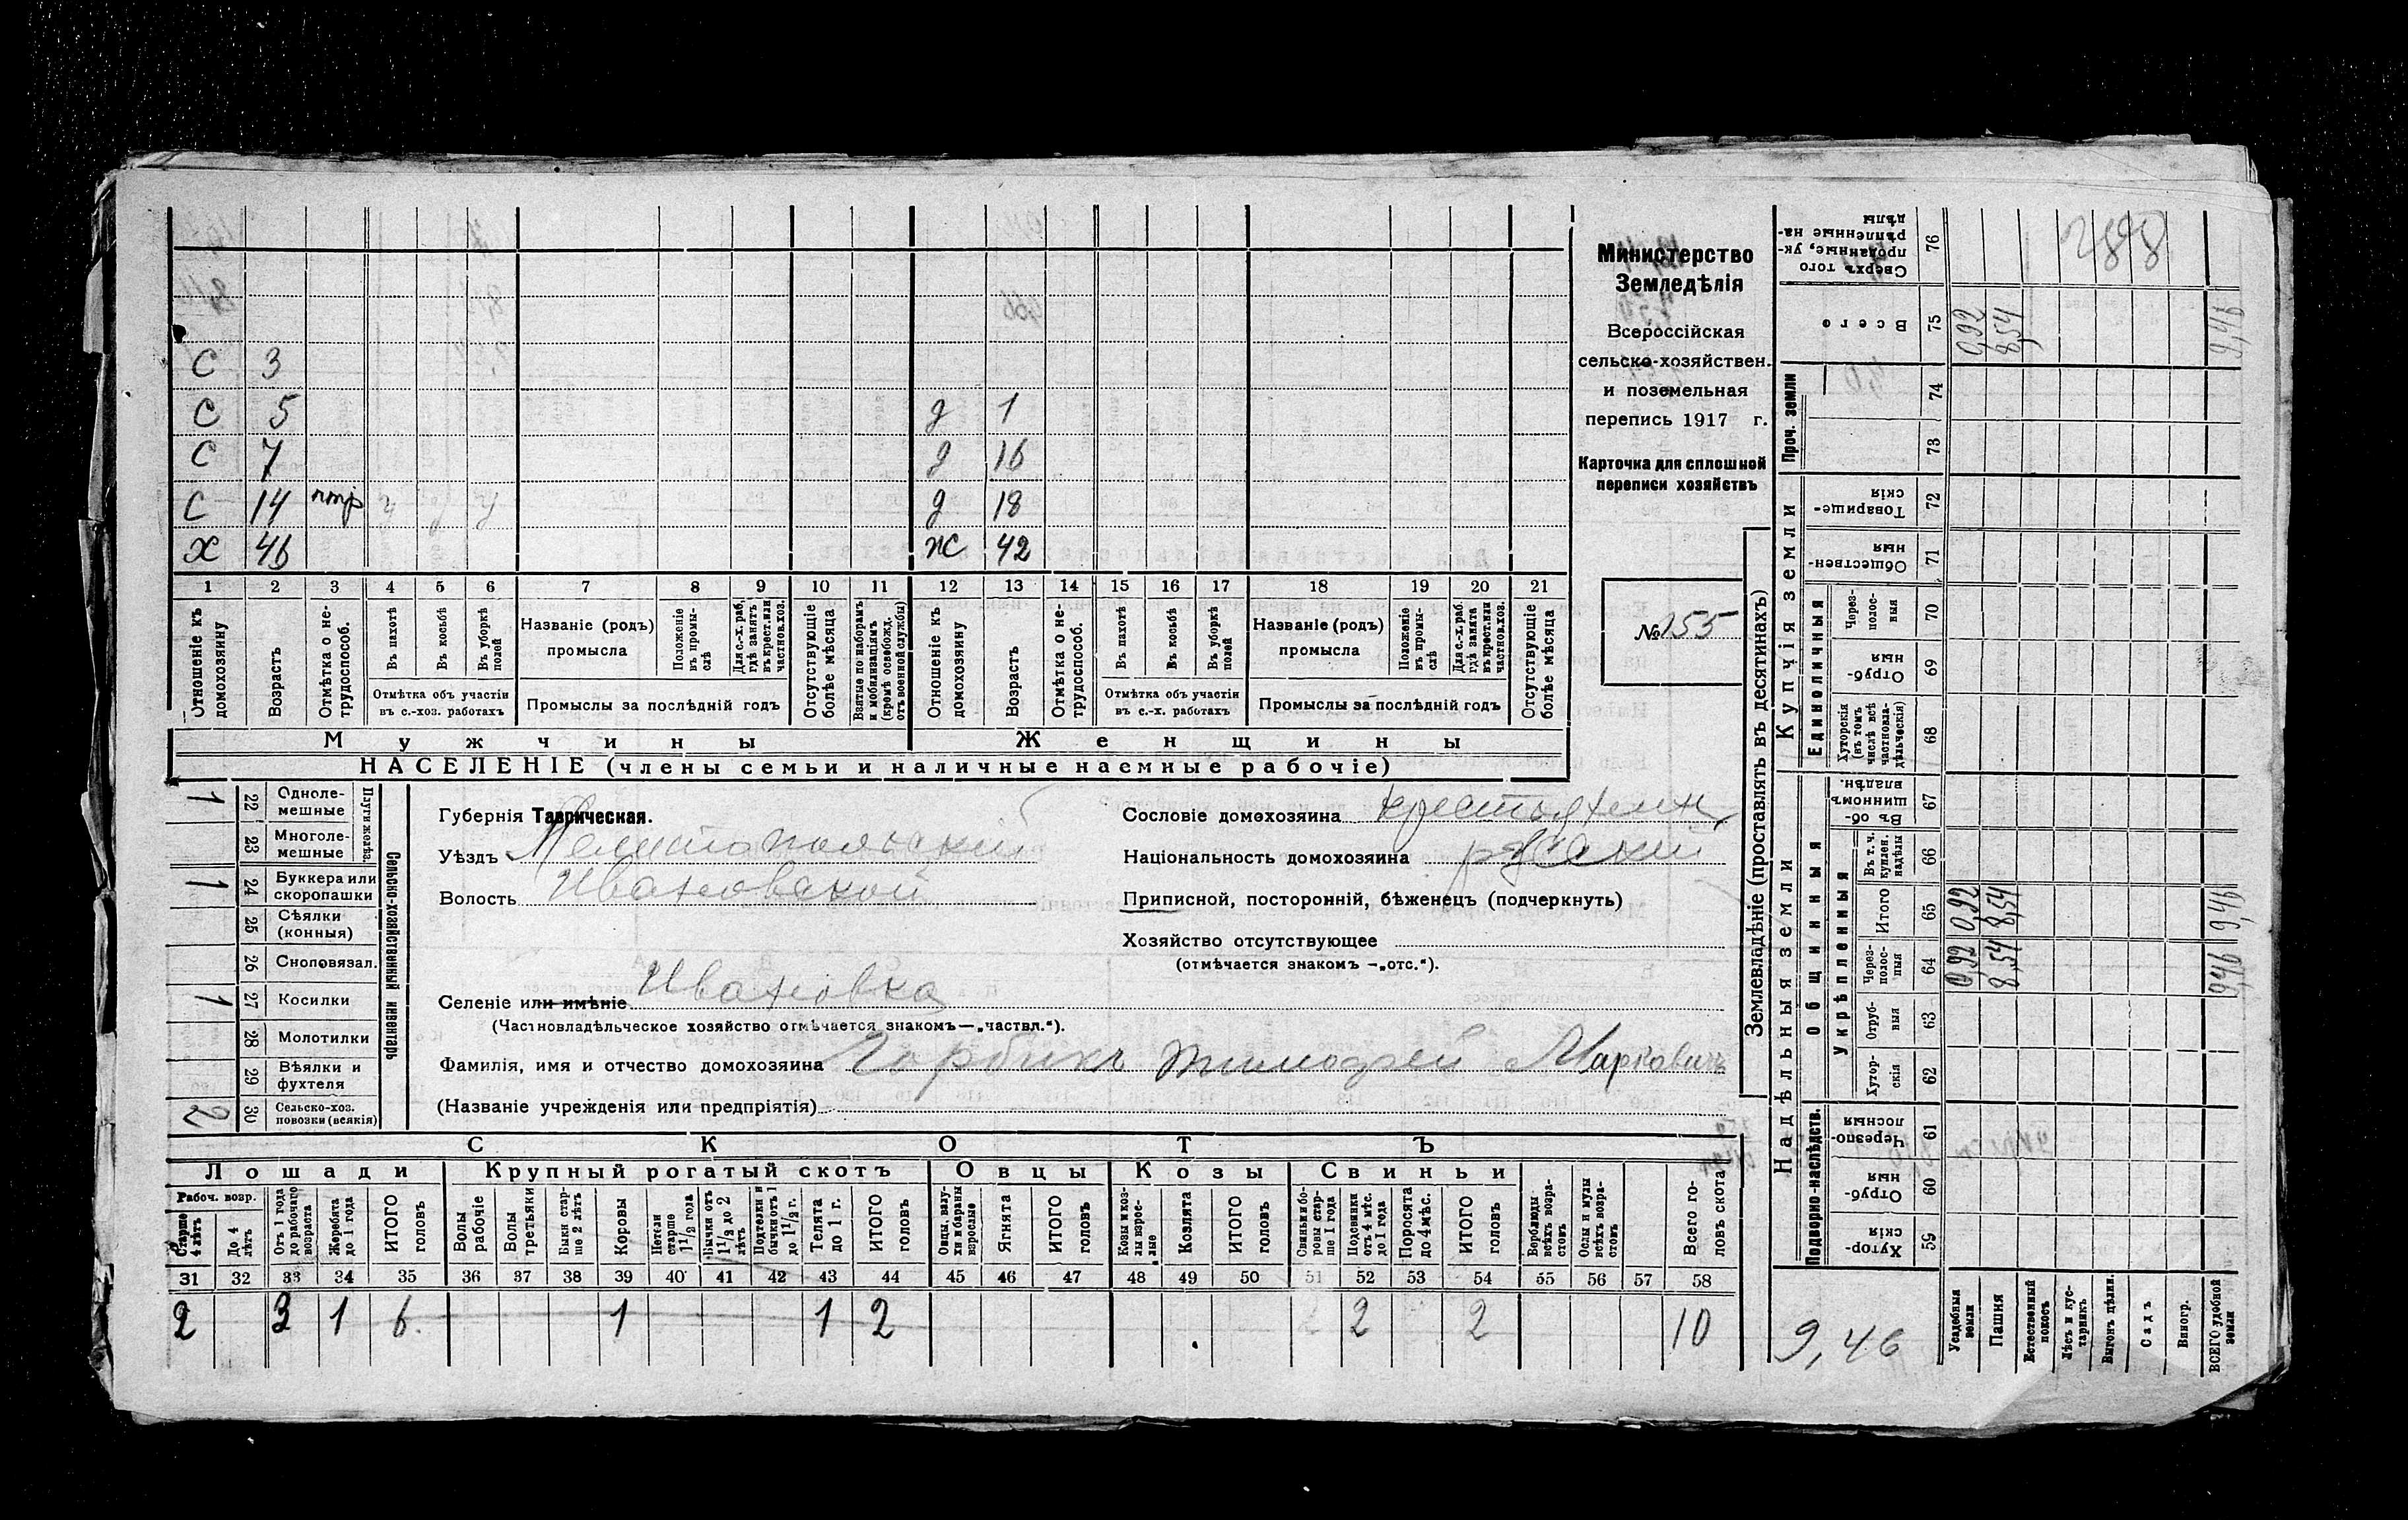 С 3
С 5 д 1
С 7 д 16
С 14 нтр у у у д 18
Х 46 ж 42
1 2 3 4 5 6 7 8 9 10 11 12 13 14 15 16 17 18 19 20 21
Отношеніе къ домохозяину
Возрастъ
Отмѣтка о нетрудоспособ.
Въ пахотѣ
Въ косьбѣ
Въ уборкѣ полей
Отмѣтка объ участіи въ с.-хоз. работахъ
Названіе (родъ) промысла
Положеніе въ промы-слѣ
Для с.-х. раб, гдѣ занятъ въ крест. или частнов. хоз.
Промыслы за послѣдній годъ
Отсутствующіе болѣе мѣсяца
Взятые по наборамъ и мобилизаціямъ (кромѣ освобожд. отъ военной службы)
Отношеніе къ домохозяину
Возрастъ
Отмѣтка о не-трудоспособ.
Въ пахотѣ
Въ косьбѣ
Въ уборкѣ полей
Отмѣтка объ участіи въ с.-х. работахъ
Названіе (родъ) промысла
Положеніе въ промы-слѣ
Для с.-х. раб. гдѣ занята въ крест. или частнов. хоз.
Промыслы за послѣдній годъ
Отсутствующіе болѣе мѣсяца
Мужчины Женщины
НАСЕЛЕНІЕ (члены семьи и наличные наемные рабочіе)
Министерство
Земледѣлія
Всероссійская
сельско-хозяйствен.
и поземельная
перепись 1917 г.
Карточка для сплошной
переписи хозяйствъ
№ 155
1 22 Одноле-мешные
23 Многоле-мешные
1 24 Буккера или скоропашки
25 Сѣялки (конныя)
26 Сноповязал.
1 27 Косилки
28 Молотилки
29 Вѣялки и фухтеля
2 30 Сельско-хоз. повозки (всякія)
Сельско-хозяйственный инвентарь
Губернія Таврическая.
Уѣздъ Мелитопольский
Волость Ивановской
Селеніе или имѣніе Ивановка
(Частновладѣльческое хозяйство отмѣчается знакомъ—„частвл.“).
Фамилія, имя и отчество домохозяина Горбикъ Тимофей Маркович
(Названіе учрежденія или предпріятія)
Сословіе домохозяина крестьянин
Національность домохозяина русский
Приписной, посторонній, бѣженецъ (подчеркнуть)
Хозяйство отсутствующее
(отмѣчается знакомъ —„отс.“).
СКОТЪ
Лошади Крупный рогатый скотъ Овцы Козы Свиньи
Рабоч. возр.
Старше 4 лѣтъ
До 4 лѣтъ
Отъ 1 года до рабочаго возраста
Жеребята до 1 года
ИТОГО головъ
Волы рабочіе
Волы третьяки
Быки стар-ше 2 лѣтъ
Коровы
Нетели старше 1 1/2 года
Бычки отъ 1 1/2 до 2 лѣтъ
Подтелки и бычки отъ 1 до 1 1/2 г.
Телята до 1 г.
ИТОГО головъ
Овцы, валу-хи и бараны взрослые
Ягнята
ИТОГО головъ
Козы и коз-лы взрос-лые
Козлята
ИТОГО головъ
Свиньи и бо-ровы стар-ше 1 года
Подсвинки отъ 4 мѣс. до 1 года
Поросята до 4 мѣс.
ИТОГО головъ
Верблюды всѣхъ возра-стовъ
Ослы и мулы всѣхъ возра-стовъ
Всего го-ловъ скота
31 32 33 34 35 36 37 38 39 40 41 42 43 44 45 46 47 48 49 50 51 52 53 54 55 56 57 58
2 3 1 6 1 1 2 2 2 10
Землевладѣніе (проставлять въ десятинахъ)
Надѣльныя земли Купчія земли Проч. земли
Подворно-наслѣдств. Общинныя Единоличныя
Укрѣпленныя
Хутор-скія 59
Отруб-ныя 60
Черезпо-лосныя 61
Хутор-скія 62
Отруб-ныя 63
Через-полос-ныя 64 0,92 8,54 9,46
Итого 65 0,92 8,54 9,46
Въ т. ч. куплен. надѣлы 66
Въ об-щинномъ владѣн. 67
Хуторскія (въ томъ числѣ всѣ частновла-дѣльческія) 68
Отруб-ныя 69
Через-полос-ныя 70
Обществен-ныя 71
Товарище-скія 72
73
74
Всего 75 0,92 8,54 9,46
Сверхъ того проданные, ук-рѣпленные на-дѣлы 76
2898
9,46
Усадебныя земли
Пашня
Естественный покосъ
Лѣсъ и кус-тарникъ
Выгонъ цѣлин.
Садъ
Виногр.
ВСЕГО удобной земли